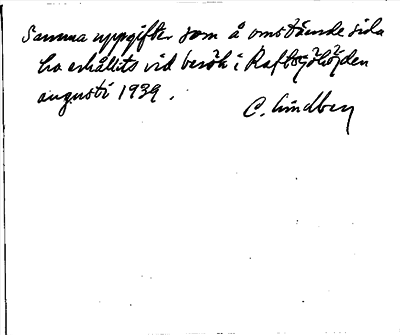 Samma uppgifter som å omstående sida
ha erhållits vid besök i Raftsjöhöjden
augusti 1939.
C. Lindberg